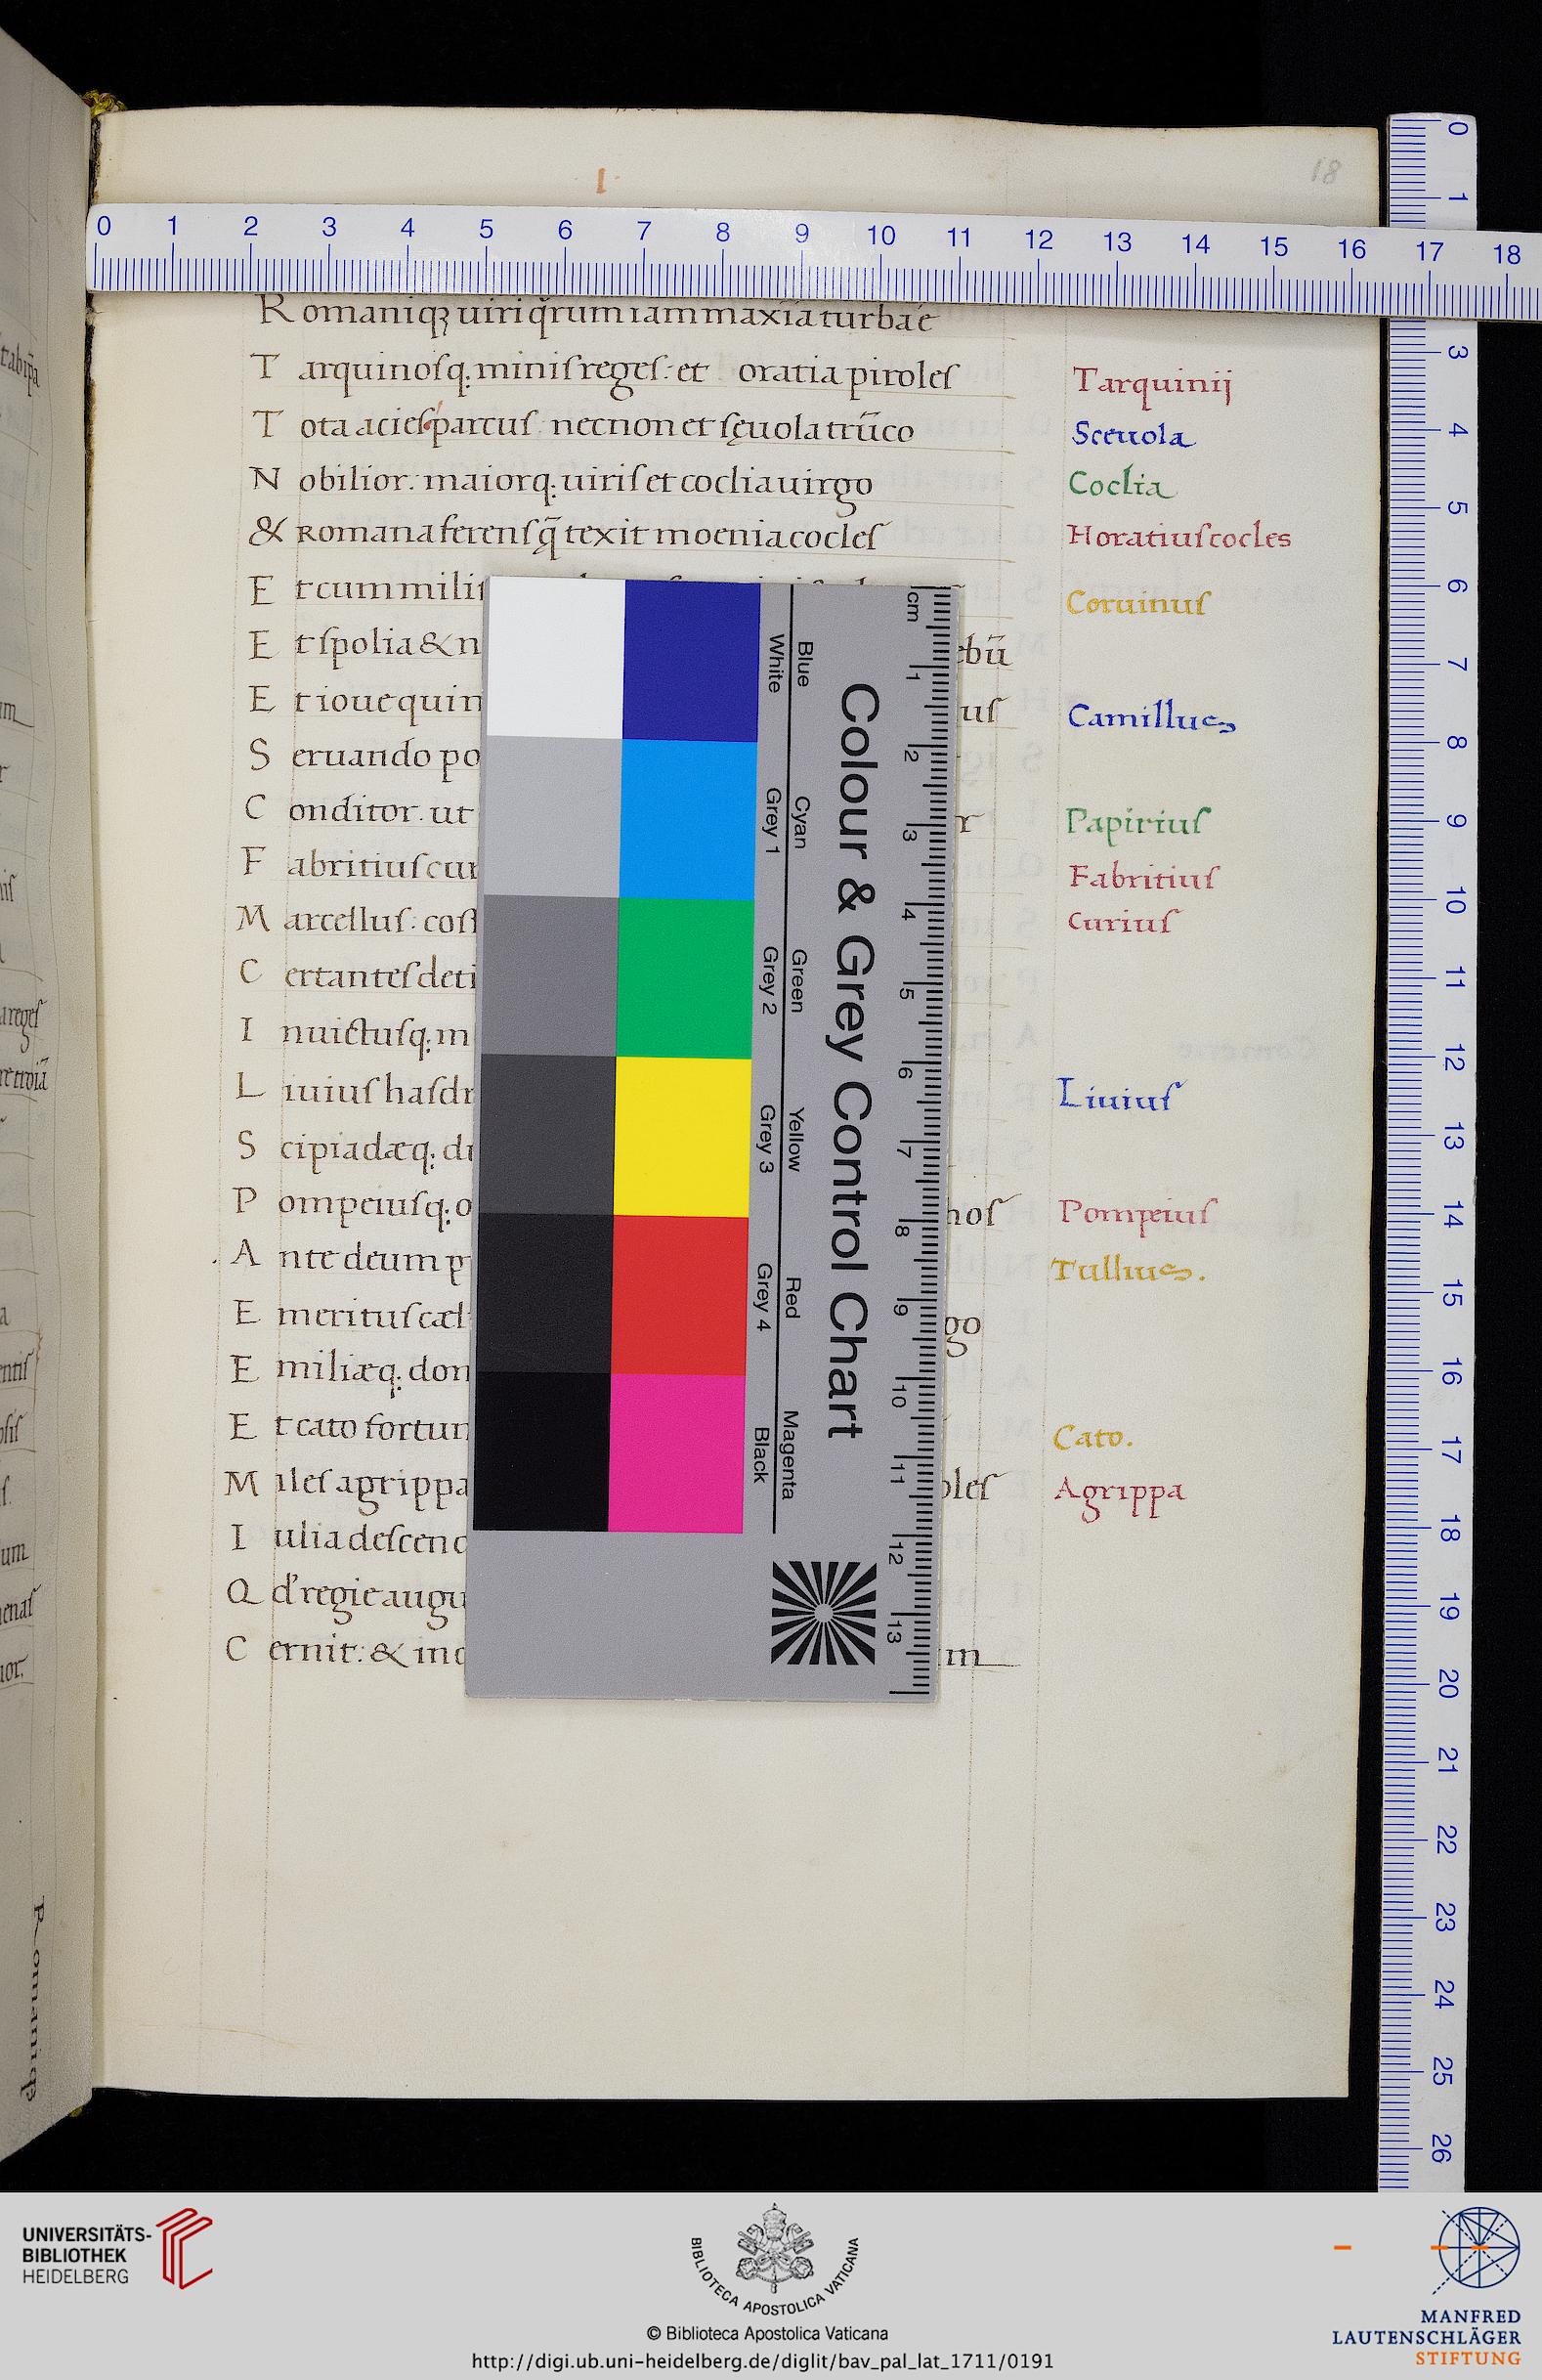 18
I
Romaniqꝫ uiri qrum iam maxia turba e
Tarquinosq. minis reges: et oratia piroles
Tarquinij
Tota acies partus: necnon et sęuola trūco
Sceuola
Nobilior: maiorq. uiris et coclia uirgo
Coclia
& Romana ferens q̄ texit moenia cocles
Horatius cocles
Et cum milit
Coruinus
Et spolia & n
ebū
Et ioue quin
us
Camillus
Seruando po
Conditor. ut
r
Papirius
Fabritius cur
Fabritius
Marcellus: coss
Curius
Certantes deti
Inuictusq. m
Liuius hasdr
Liuius
Scipiadæq. du
Pompeiusq. o
hos
Pompeius
Ante deum p
Tullius.
Emeritus cæl
go
Emiliæq. dom
Et cato fortun
Cato.
Miles agrippa
oles
Agrippa
Iulia descend
Qd' regie augu
Cernit: & ind
m
0 1 2 3 4 5 6 7 8 9 10 11 12 13 14 15 16 17 18
0 1 3 4 5 6 7 8 9 10 11 12 13 14 15 16 17 18 19 20 21 22 23 24 25 26
Colour & Grey Control Chart
Blue Cyan Green Yellow Red Magenta
White Grey 1 Grey 2 Grey 3 Grey 4 Black
cm 1 2 3 4 5 6 7 8 9 10 11 12 13
UNIVERSITÄTS-
BIBLIOTHEK
HEIDELBERG
BIBLIOTECA APOSTOLICA VATICANA
© Biblioteca Apostolica Vaticana
http://digi.ub.uni-heidelberg.de/diglit/bav_pal_lat_1711/0191
MANFRED
LAUTENSCHLÄGER
STIFTUNG